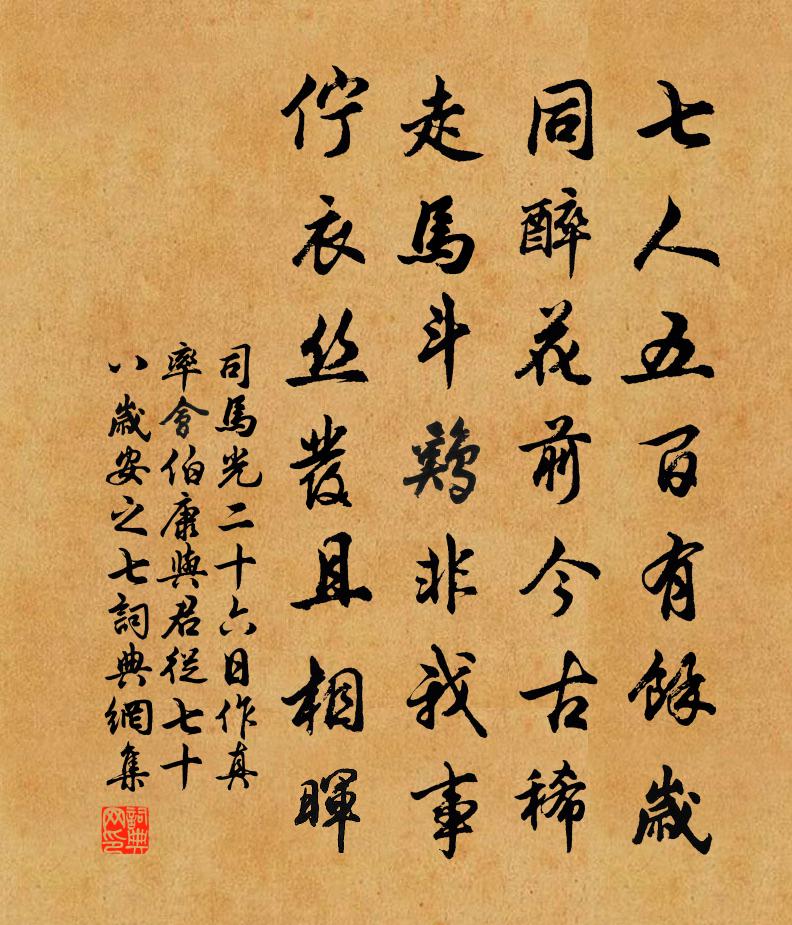 七人五百有餘歲
同醉花前今古稀
走馬斗鷄非我事
佇衣丝發且相暉
司馬光二十六日作真
率會伯康與君從七十
八歲安之七詞典網集
詞典网印